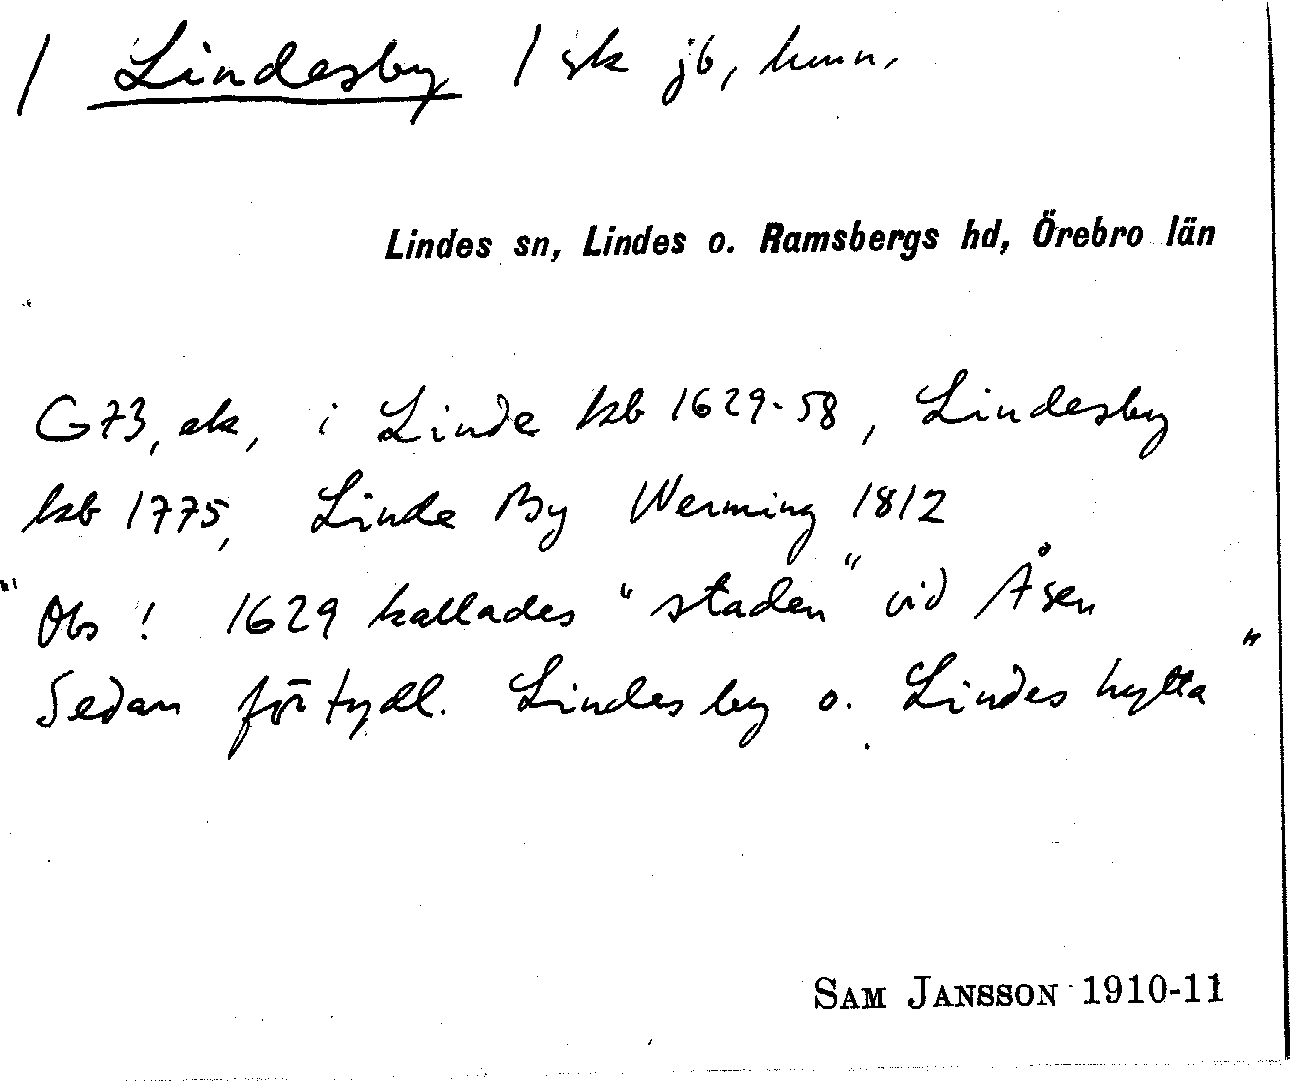 / Lindesby / sk jb, hmn.
Lindes sn, Lindes o. Ramsbergs hd, Örebro län
G73, ek, i Linde kb 1629-58, Lindesby
kb 1775, Linde By Werming 1812
"Obs! 1629 kallades "staden" vid Åsen
Sedan förtydl. Lindesby o. Lindes hytta"
SAM JANSSON 1910-11